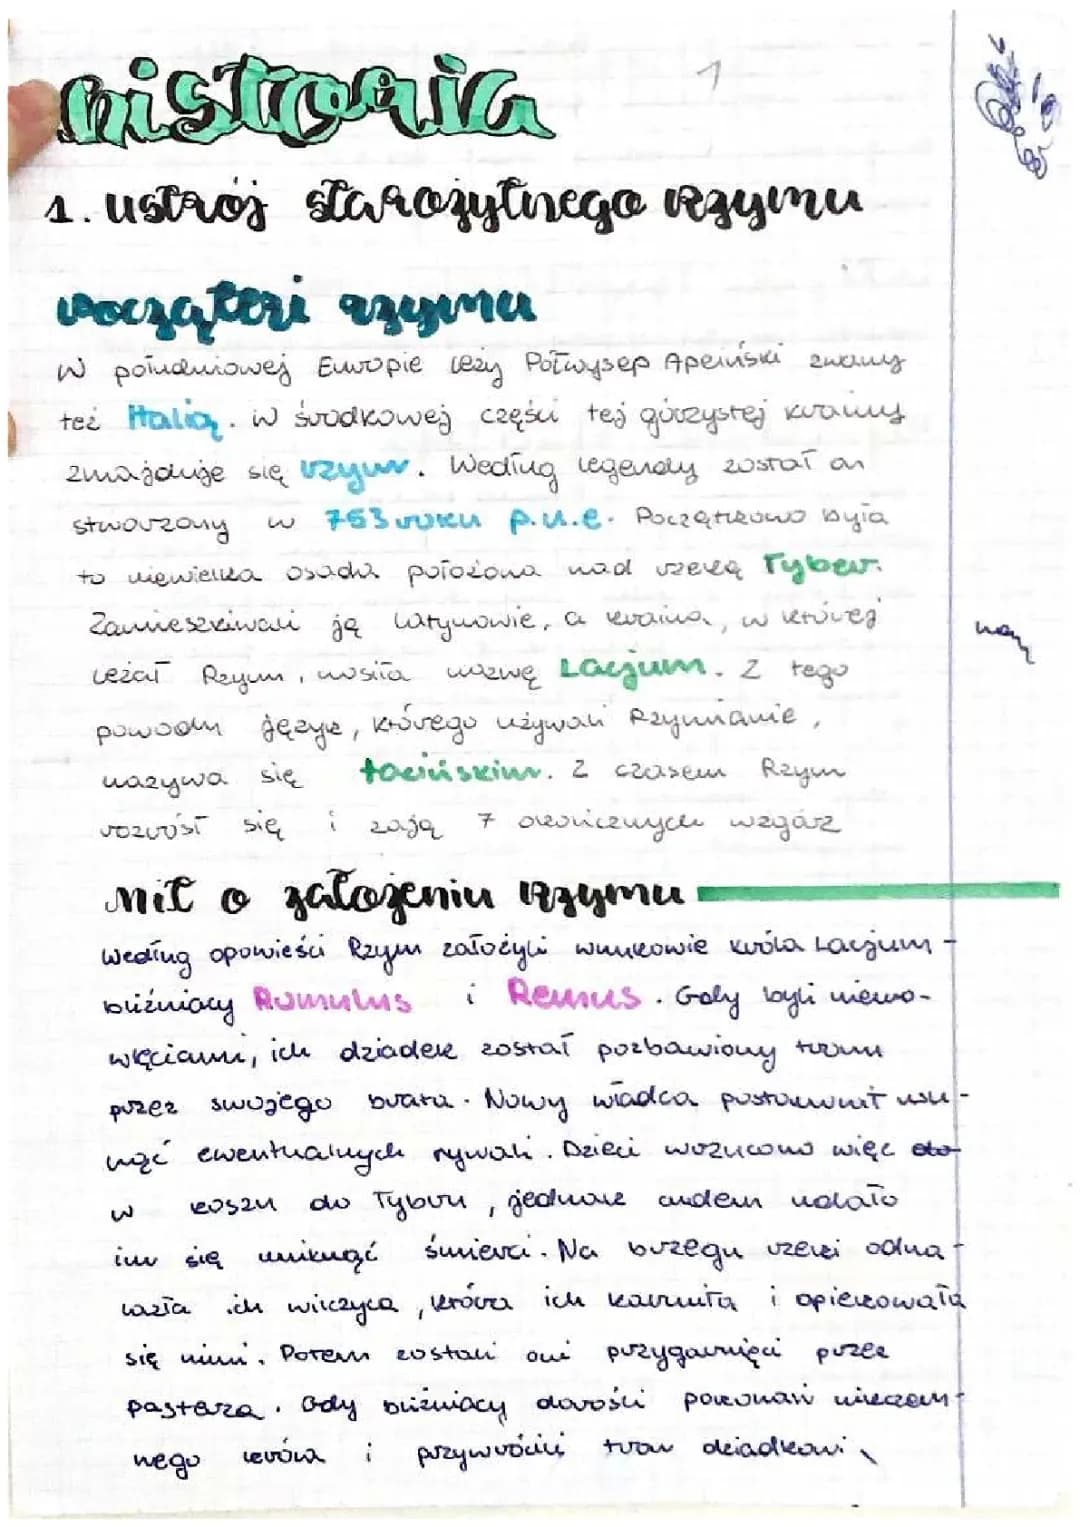 historia
1
1. ustrój starożytnego rzymu
początki rzymu
W południowej Europie leży Półwysep Apeniński znany
też Italią. W środkowej części tej górzystej krainy
znajduje się rzym. Według legendy został on
stworzony w 753 roku p.n.e. Początkowo była
to niewielka osada położona nad rzeką Tyber.
Zamieszkiwali ją Latynowie, a kraina, w której
leżał Rzym, nosiła nazwę Lacjum. Z tego
powodu język, którego używali Rzymianie,
nazywa się łacińskim. Z czasem Rzym
rozrósł się i zają 7 okolicznych wzgórz
Mit o założeniu rzymu
Według opowieści Rzym założyli wnukowie króla Lacjum -
bliźniacy Romulus i Remus. Gdy byli niemo-
wlęciami, ich dziadek został pozbawiony tronu
przez swojego brata. Nowy władca postanowił usu-
nąć ewentualnych rywali. Dzieci wrzucono więc do
w koszu do Tybru, jednak cudem udało
im się uniknąć śmierci. Na brzegu rzeki odna-
lazła ich wilczyca, która ich karmiła i opiekowała
się nimi. Potem zostali oni przygarnięci przez
pasterza. Gdy bliźniacy dorośli pokonali niezcem-
nego króla i przywrócili tron dziadkowi